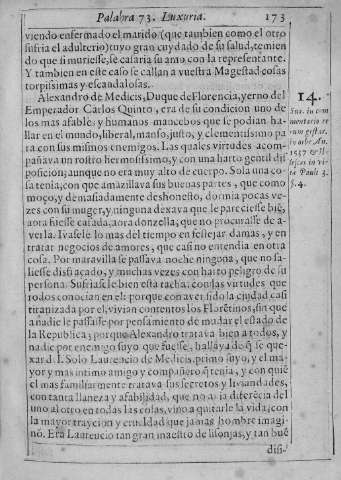 Palabra 73. Luxuria. 173
viendo enfermado el marido (que tambien como el otro
sufria el adulterio) tuvo gran cuydado de su salud, temien
do que si muriesse, se casaria su amo con la representante.
Y tambien en este caso se callan a vuestra Magestad cosas
torpissimas y escandalosas.
Alexandro de Medicis, Duque de Florencia, yerno del
Emperador Carlos Quinto, era de su condicion uno de
los mas afables y humanos mancebos que se podian ha-
llar en el mundo, liberal, manso, justo, y clementissimo pa
ra con sus mismos enemigos. Las quales virtudes acom-
pañava un rostro hermosissimo, y con una harto gentil dis
posicion; aunque no era muy alto de cuerpo. Sola una co-
sa tenia, con que amazillava sus buenas partes, que como
moço, y demasiadamente deshonesto, dormia pocas ve-
zes con su muger, y ninguna dexava que le pareciesse biē,
aora fuesse casada, aora donzella; que no procurasse de a-
verla. Ivasele lo mas del tiempo en festejar damas, y en
tratar negocios de amores, que casi no entendia en otra
cosa. Por maravilla se passava noche ninguna, que no sa-
liesse disfraçado, y muchas vezes con harto peligro de su
persona. Sufriasele bien esta tacha, con las virtudes que
todos conocian en el: porque con aver sido la ciudad casi
tiranizada por el, vivian contentos los Florētinos, sin que
a nadie le passasse por pensamiento de mudar el estado de
la Republica; porque Alexandro tratava bien a todos, y
nadie por enemigo suyo que fuesse, hallava de q̄ se que-
xar d l. Solo Laurencio de Medicis primo suyo, y el ma-
yor y mas intimo amigo y compañero q̄ tenia, y con quiē
el mas familiarmente tratava sus secretos y liviandades,
con tanta llaneza y afabilidad, que no avia diferēcia del
uno al otro en todas las cosas, vino a quitarle la vida; con
la mayor traycion y crueldad que jamas hombre imagi-
nò. Era Laurencio tan gran maestro de lisonjas, y tan buē
disi-
14.
§. 4.